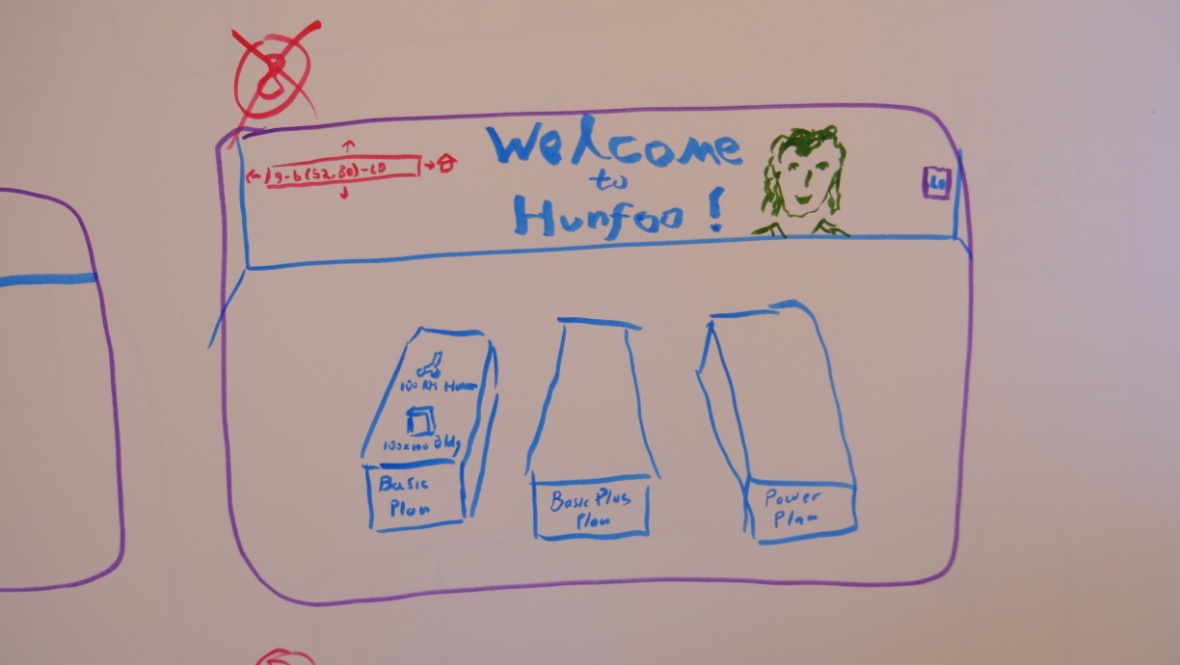 8
Welcome
to
Hunfoo!
LD
100 RM
100x100 Bldg
Basic
Plan
Basic Plus
Plan
Power
Plan